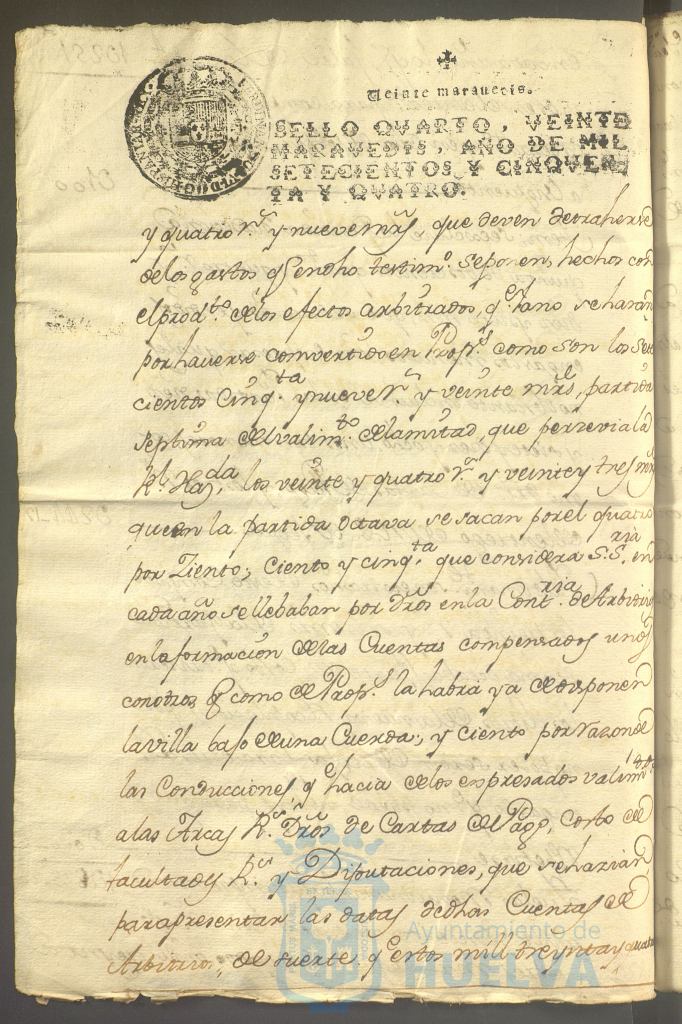 Veinte maravedis.
SELLO QVARTO, VEINTE
MARAVEDIS, AÑO DE MIL
SETECIENTOS Y CINQVEN
TA Y QVATRO.
y quatro r.s y nueve mrs, que deven detraherse
de los gastos q̃ en dho testim.o se ponen hechos con
el prod.to de los efectos arbitrados, q.e ya no se haran
por haverse comvertido en Prop.s como son los Sete
cientos Cinq.ta y nueve r.s y veinte mrs, partida
septima del valim.to de la mitad, que perzevia la
R.l Haz.da, los veinte y quatro r.s y veinte y tres mrs
que en la partida octava se sacan por el quatro
por Ziento; ciento y cinq.ta que considera S.S.ria en
cada año se llebaban por dros en la Cont.ria de Arbitrios
en la formación de las Cuentas compensados unos
con otros q̃ como de Prop.s la habrá ya de disponer
la villa bajo de una Cuerda; y ciento por razon de
las Conducciones q.e hacia de los expresados valim.tos
a las Arcas R.s Dros de Cartas de Pago, costo de
facultades R.s y Diputaciones, que se hazian
para presentar las datas de dhas Cuentas de
Arbitrio; de suerte q̃ estos mill treynta y quatro
Ayuntamiento de
HUELVA